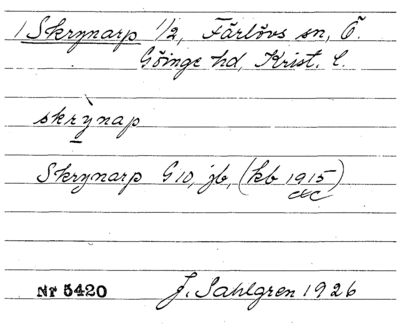 1 Skrynarp 1/2, Färlövs sn, Ö.
Göinge hd, Krist. l.
skrỳnap
Skrynarp G10, jb, (kb 1915)
Nr 5420 J. Sahlgren 1926